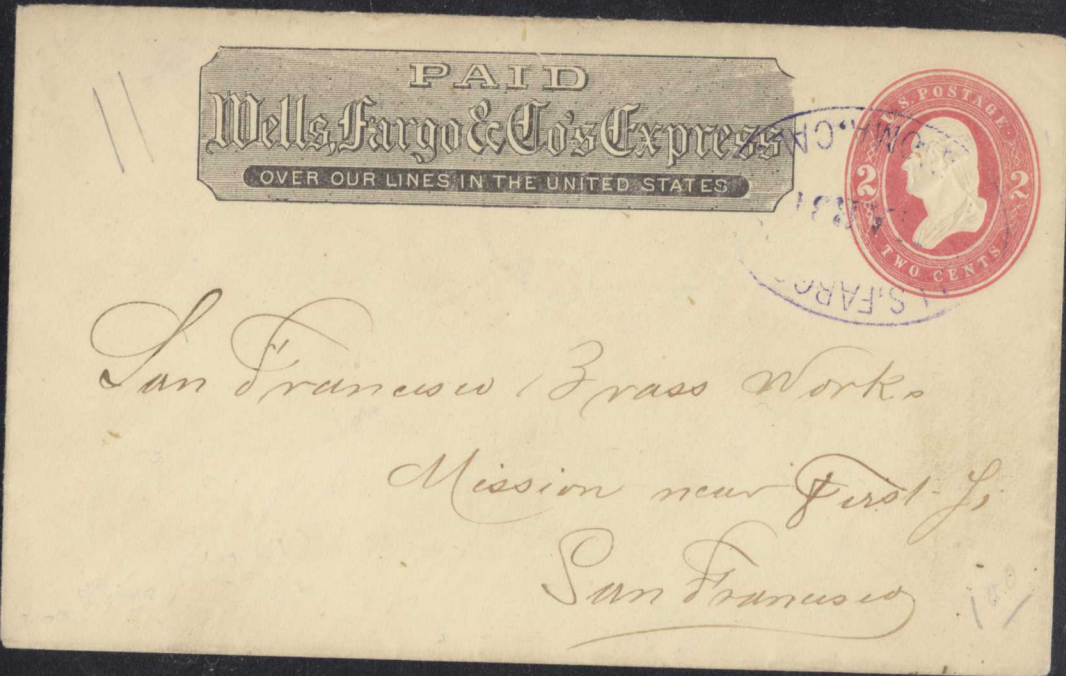 PAID
Wells, Fargo & Co's Express
OVER OUR LINES IN THE UNITED STATES
U.S. POSTAGE
2 2
TWO CENTS
CAL
S, FARGO
31
11
San Francisco Brass Works
Mission near First
San Francisco